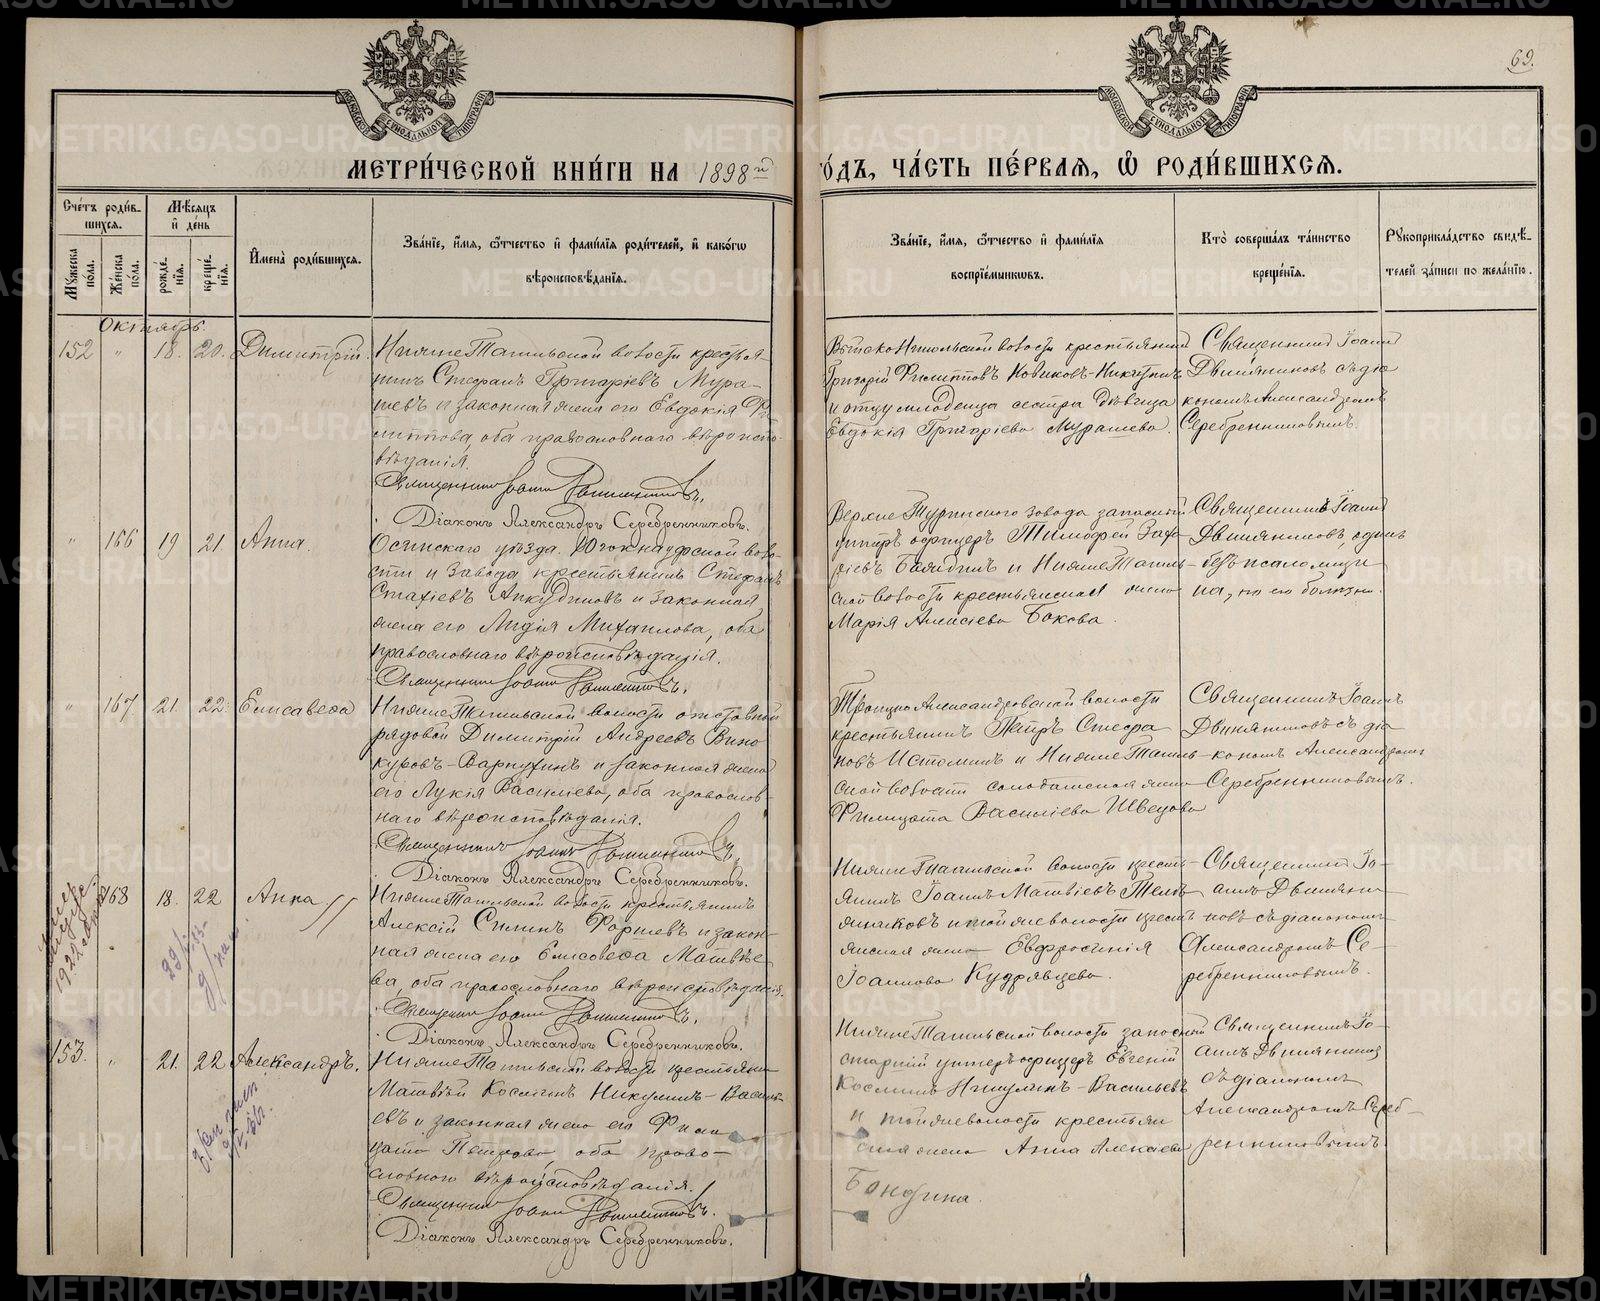 69.
МОСКОВСКОЙ СѴНОДАЛЬНОЙ ТИПОГРАФІИ
МОСКОВСКОЙ СѴНОДАЛЬНОЙ ТИПОГРАФІИ
МЕТРИ́ЧЕСКОЙ КНИ́ГИ НА 1898й
ГО́ДЪ, ЧА́СТЬ ПЕ́РВАЯ, Ѡ РОДИ́ВШИХСЯ.
Сче́тъ роди́в-
шихся.
Мѣ́сяцъ
и де́нь
Мꙋ́жеска пола.
Же́нска по́ла.
рожде́-
нїя.
креще́-
нїя.
И҆мена̀ роди́вшихся.
Зва́нїе, и҆́мя, ѻ҆́тчество и҆ фами́лїя роди́телей, и҆ како́гѡ
вѣроисповѣ́данїя.
Зва́нїе, и҆́мя, ѻ҆́тчество и҆ фами́лїя
воспрїе́мникѡвъ.
Кто̀ соверша́лъ та́инство
креще́нїя.
Рꙋкоприкла́дство свидѣ́-
телей за́писи по жела́нїю.
Октябрь.
152 " 18. 20. Димитрій.
НижнеТагильской волости крестья-
нинъ Стефанъ Григоріевъ Мура-
шевъ и законная жена его Евдокія Фи-
липпова, оба православнаго вѣроиспо-
вѣданія.
Священникъ Іоаннъ
Діаконъ Александръ Серебренниковъ.
Григорій Филипповъ Новиковъ-Никитинъ
и отцу младенца сестра дѣвица
Евдокія Григоріева Мурашева.
Священникъ Іоаннъ
Двиняниновъ съ діа
кономъ Александромъ
Серебренниковымъ.
" 166 19 21. Анна.
Осинскаго уѣзда. Юго-Кнауфской воло-
сти и завода крестьянинъ Стефанъ
Стахіевъ Анкудиновъ и законная
жена его Лидія Михаилова, оба
православнаго вѣроисповѣданія.
Священникъ Іоаннъ
ВерхнеТуринского завода запасный
унтеръ офицеръ Тимофей
и НижнеТагиль-
ской волости крестьянская жена
Марія Алексіева Бокова.
Священникъ Іоаннъ
Двиняниновъ, одинъ
безъ псаломщи
ка, по его болѣзни.
" 167 21. 22. Елисавета
НижнеТагильской волости отставной
рядовой Димитрій Андреевъ Вино
куровъ-Варнухинъ и законная жена
его Лукія Василіева, оба православ-
наго вѣроисповѣданія.
Священникъ Іоаннъ
Діаконъ Александръ Серебренниковъ.
ТроицкоАлександровской волости
крестьянинъ Петръ Стефа
новъ Истоминъ и НижнеТагиль-
ской волости солдатская жена
Филицата Василіева Швецова
Священникъ Іоаннъ
Двиняниновъ съ діа-
кономъ Александромъ
Серебренниковымъ.
168 18. 22 Анна.
НижнеТагильской волости крестьянинъ
Алексій Силинъ и закон-
ная жена его Елисавета Матвѣе
ва, оба православнаго вѣроисповѣданія.
Священникъ Іоаннъ
Діаконъ Александръ Серебренниковъ.
НижнеТагильской волости кресть-
янинъ Іоаннъ Матвіевъ
и той же волости крест
янская жена Евфросинія
Іоаннова Кудрявцева.
Священникъ Іо-
аннъ Двиняни-
новъ съ діакономъ
Александромъ Се-
ребренниковымъ.
153. " 21. 22 Александръ.
НижнеТагильской волости крестьянинъ
Матвій Косминъ Никулинъ-Василь-
евъ и законная жена его Фили
цата Петрова, оба право-
славнаго вѣроисповѣданія.
Священникъ Іоаннъ
Діаконъ Александръ Серебренниковъ.
НижнеТагильской волости запасной
старшій унтеръ-офицеръ Евгеній
Косминъ Никулинъ-Васильевъ
и той же волости крестьян
ская жена Анна Алексіева
Бондина.
Священникъ Іо-
аннъ Двиняниновъ
съ діакономъ
Александромъ Сереб-
ренниковымъ.
METRIKI.GASO-URAL.RU